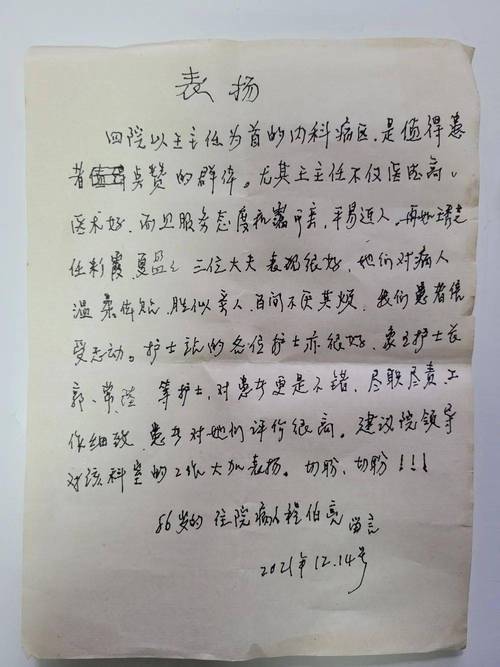 表扬
四院以王主任为首的内科病区,是值得患
者点赞的群体。尤其王主任不仅医德高、
医术好,而且服务态度和蔼可亲,平易近人。再如
任彩霞、夏 三位大夫表现很好,她们对病人
温柔体贴,胜似亲人,百问不厌其烦,我们患者倍
受感动。护士站的各位护士亦很好,袁主护士长
郭、常陆 等护士,对患者更是不错,尽职尽责,工
作细致,患者对她们评价很高。建议院领导
对该科室的工作大加表扬。切盼、切盼!!!
86岁的住院病人程伯亮留言
2021年12.14号